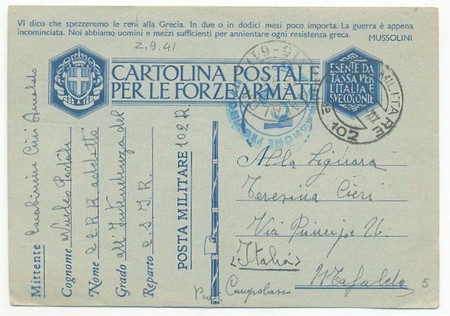 Vi dico che spezzeremo le reni alla Grecia. In due o in dodici mesi poco importa. La guerra è appena
incominciata. Noi abbiamo uomini e mezzi sufficienti per annientare ogni resistenza greca.
MUSSOLINI
2.9.41
CARTOLINA POSTALE
PER LE FORZE ARMATE
ESENTE DA
TASSA PER
L'ITALIA E
SVE COLONIE
MILITARE
102
Mittente Carabiniere Cieri
Cognome Nucleo Postale
Nome CC.RR. addetto
Grado all'Intendenza del
Reparto C.S.I.R.
POSTA MILITARE 102 R
Alla Signora
Teresina Cieri
Via Principe U.
(Italia)
Mafalda
Prov. Campobasso
5